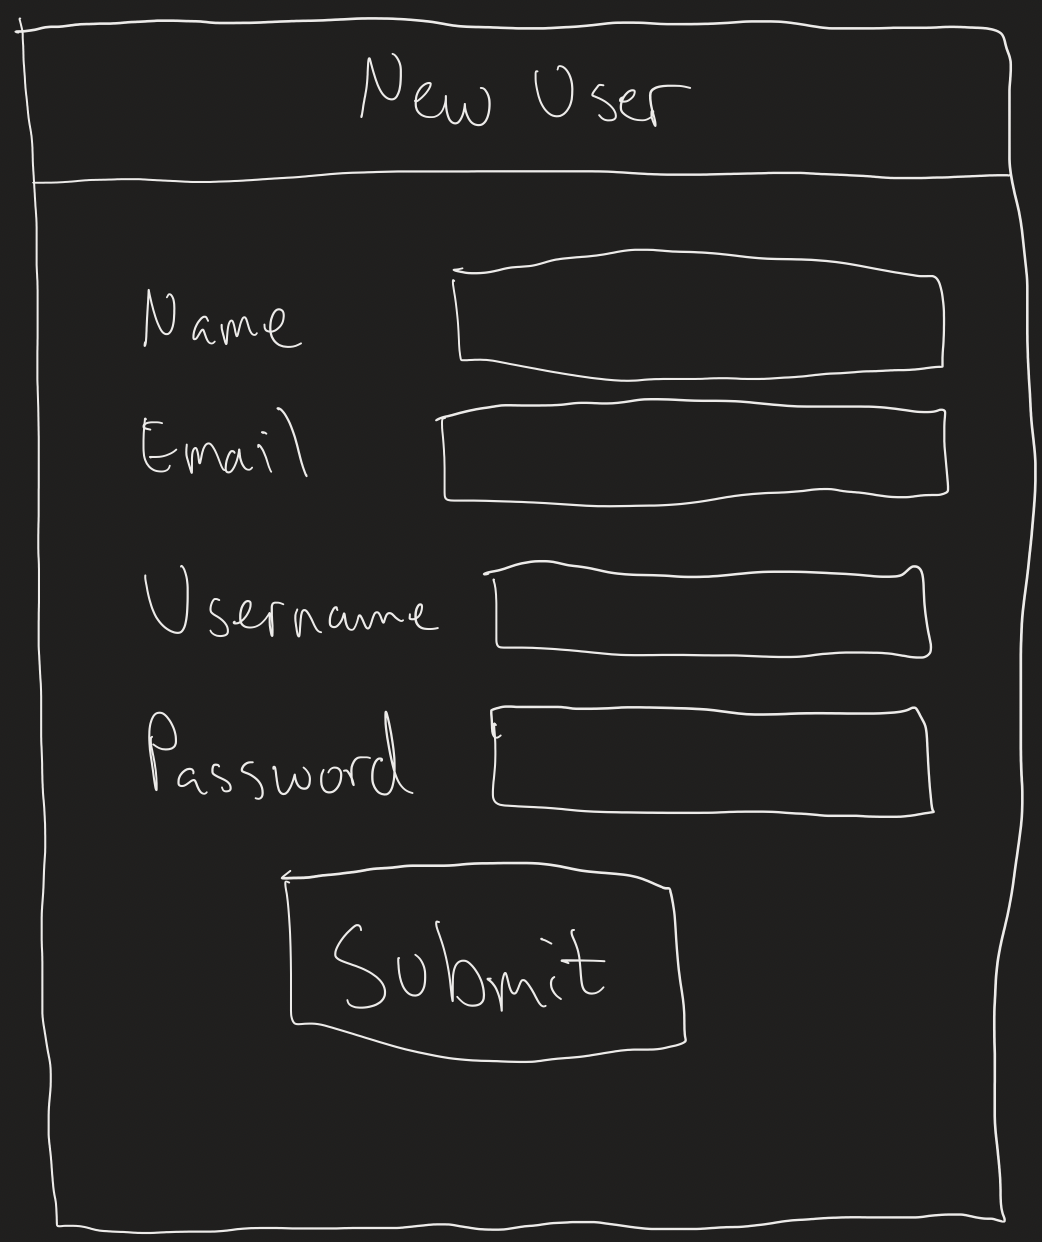 New User
Name
Email
Username
Password
Submit